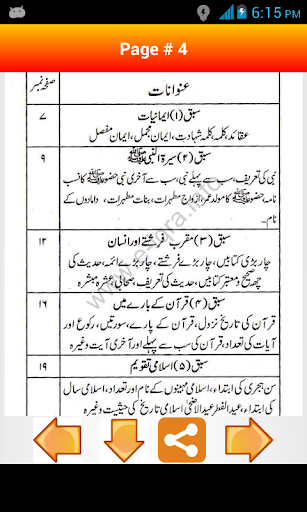 6:15 PM
Page # 4
صفحہ نمبر
عنوانات
۷
سبق (۱) ایمانیات
عقائد، کلمہ، کلمہ شہادت، ایمان مجمل، ایمان مفصل
۹
سبق (۲) سیرۃ النبی ﷺ
نبی کی تعریف، سب سے پہلے نبی، سب سے آخری نبی حضور ﷺ کا نسب
نامہ، حضور ﷺ کا مولد، عمر، ازواج مطہرات، بنات مطہرات، دامادوں کے
نام۔
۱۲
سبق (۳) مقرب فرشتے اور انسان
چار بڑی کتابیں، چار بڑے فرشتے، چار بڑے ائمہ، حدیث کی
چھ صحیح و معتبر کتابیں، حدیث کی تعریف، صحابی، عشرہ مبشرہ
۱۶
سبق (۴) قرآن کے بارے میں
قرآن کی تاریخ نزول، قرآن کے پارے، سورتیں، رکوع اور
آیات کی تعداد، قرآن کی سب سے پہلے اور آخری آیت وغیرہ
۱۹
سبق (۵) اسلامی تقویم
سن ہجری کی ابتداء، اسلامی مہینوں کے نام اور تعداد، اسلامی سال
کی ابتداء، عید الفطر عید الاضحیٰ اسلامی تاریخ کی حیثیت وغیرہ